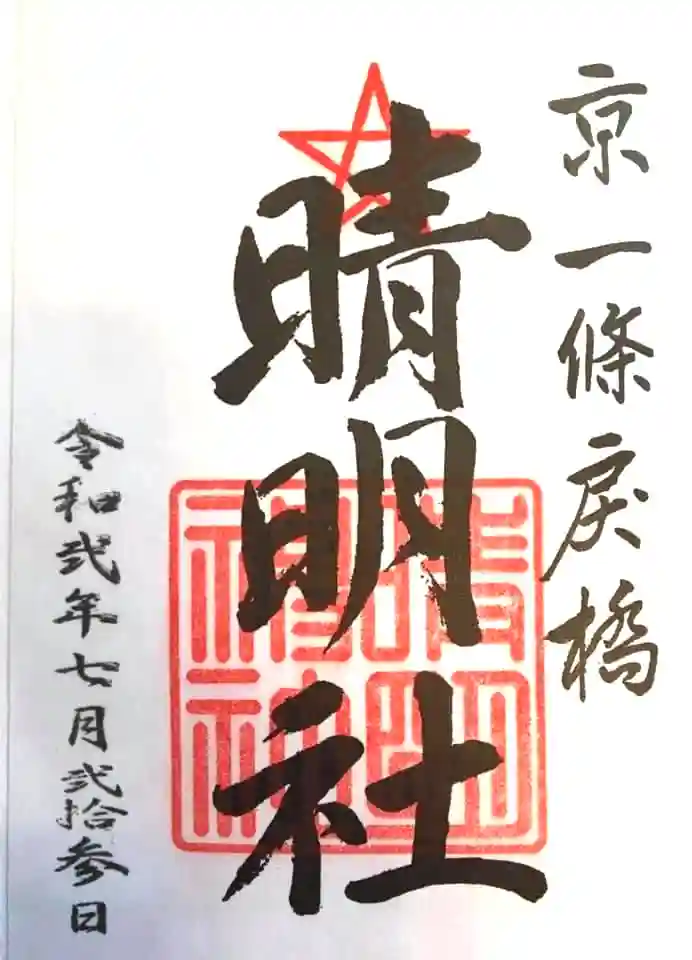 京一條戻橋
晴明社
令和弐年七月弐拾参日